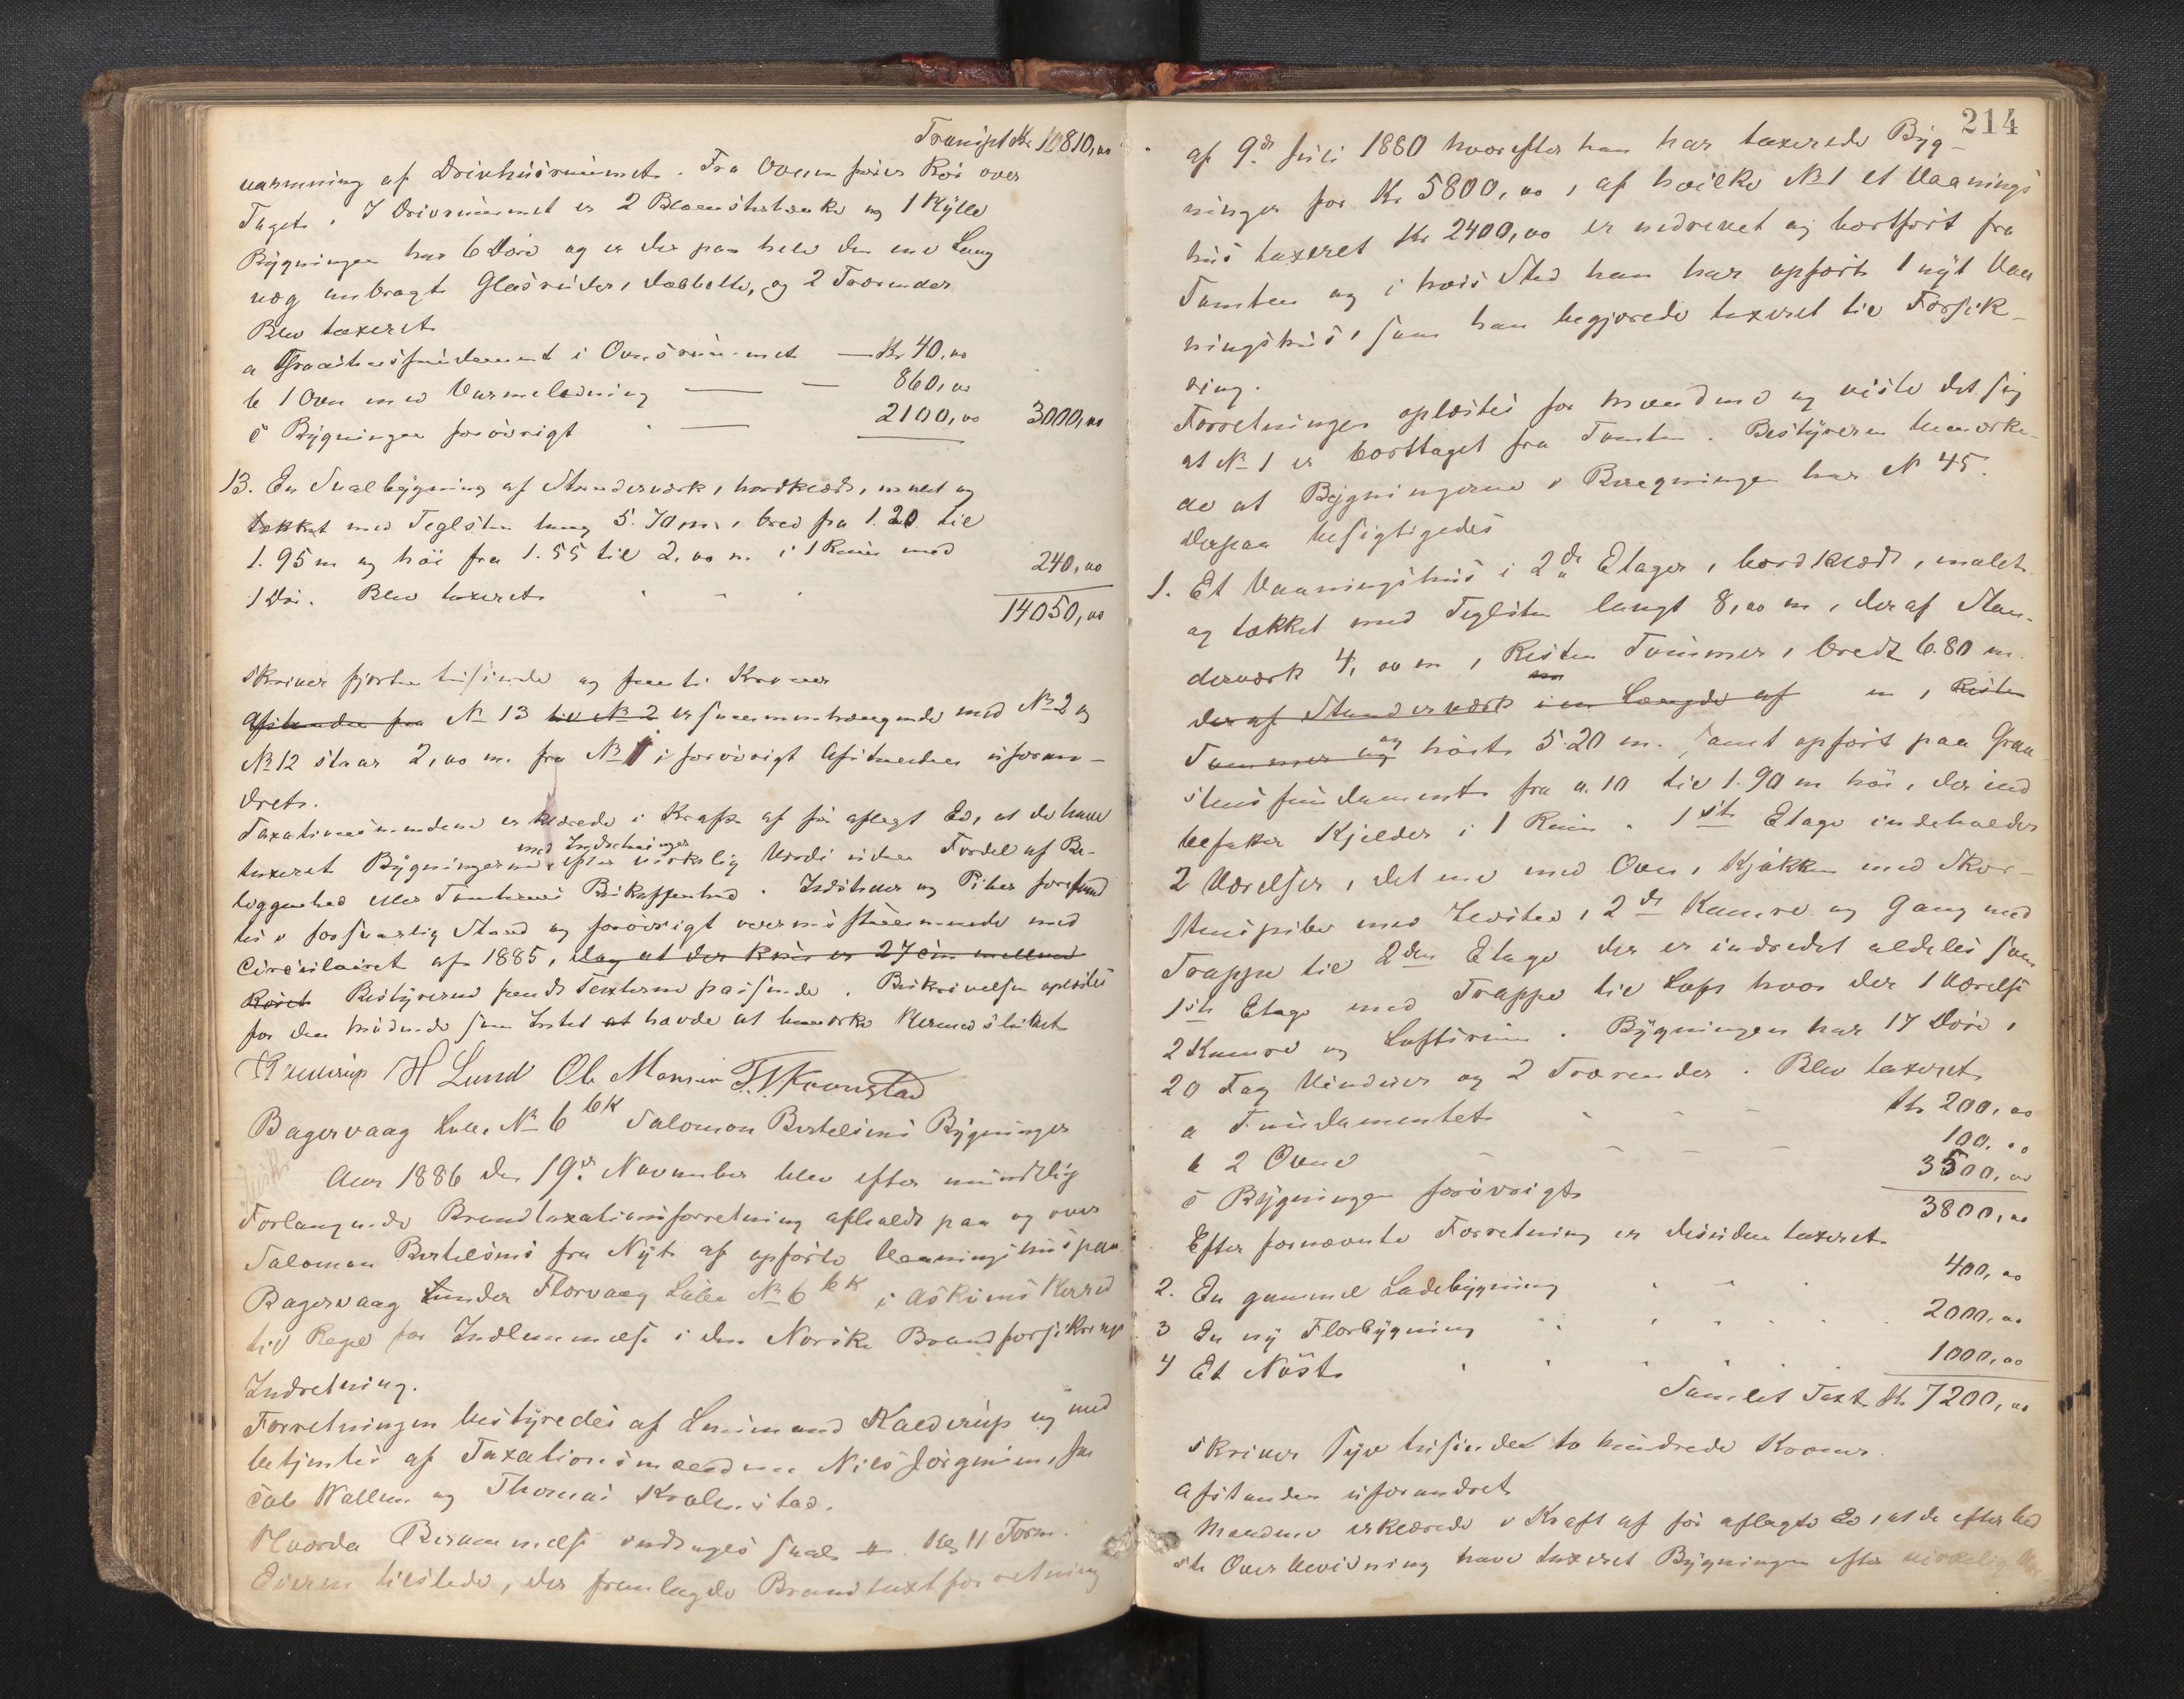 Transpt Kr 10810,00
varmning af Drivhusrummet. Fra Ovnen fører Rør over
Taget. I Drivrummet er 2 Blomsterbænke og 1 Hylle
Bygningen har 6 Døre og er der paa hele den ene Lang
væg anbragt Glasruder, dobbelte, og 2 Tværender
Blev taxeret
a Graastensfundament i Ovnsrummet — Kr 40,00
b 1 Oven med Varmeledning — — 860,00
c Bygningen forøvrigt — 2100,00 3000,00
13. En Svalbygning af Stenderværk, bordklædt, malet og
tækket med Teglsten lang 5.70 m, bred fra 1.20 til
1.95 m og høi fra 1.55 til 2,00 m. i 1 Rum med
1 Dør. Blev taxeret 240,00
14050,00
skriver fjorten tusinde og femti Kroner
Afstanden fra No 13 til No 2 er sammenhængende med No 2 og
No 12 staar 2,00 m. fra No 1 i forøvrigt Afstanden uforan-
dret.
Taxationsmændene erklærede i Kraft af før aflagt Ed, at de have
med Indretninger
taxeret Bygningerne, efter virkelig Værdi uden Fordel af Be-
liggenhed eller Tomternes Beskaffenhed. Ildsteder og Piber forefand
tes i forsvarlig Stand og forøvrigt overensstemmende med
Circulairet af 1885, dog at der kun er 27 cm mellem
Røret Bestyreren fandt Taxterne passende. Beskrivelsen oplæstes
for den mødende som Intet at havde at bemærke Hermed sluttet
H Lund Ole Monsen T. T. Kronstad
Bagervaag Lille No 6 bk Salomon Bertelsens Bygninger
Aar 1886 den 19de November blev efter mundtlig
Forlangende Brandtaxationsforretning afholdt paa og over
Salomon Bertelsens fra Nyt af opførte Vaaningshus paa
Bagervaag under Florvaag Lille No 6 bk i Askøens Herred
til Regel for Indlemmelse i den Norske Brandforsikrings
Indretning.
Forretningen bestyredes af Lensmand Kalderup og med
betjentes af Taxationsmændene Nils Jørgensen, Ja
cob Wallem og Thomas Kralmstad.
Hvorda Berammelse indtages saal. Kl 11 Form.
Eieren tilstede, der fremlagde Brandtaxtforretning
214
af 9de Juli 1880 hvorefter han har taxerede Byg-
ninger for Kr 5800,00, af hvilke No 1 et Vaanings
hus taxeret Kr 2400,00 er nedrevet og bortført fra
Tomten og i hvis Sted han har opført 1 nyt Vaa
ningshus, som han begjærede taxeret til Forsik-
ring.
Forretningen oplæstes for Mændene og viste det sig
at No 1 er borttaget fra Tomten. Bestyreren bemærke-
de at Bygningerne i Beregningen har No 45.
Derpaa besigtigedes
1. Et Vaaningshus i 2de Etager, bordklædt, malet
og tækket med Teglsten langt 8,00 m, deraf Sten-
derværk 4,00 m, Resten Tømmer, bredt 6.80 m.
deraf Stenderværk i en Længde af m, Resten
Tømmer og høit 5.20 m. samt opført paa Graa
stensfundament fra 0.10 til 1.90 m høi, der ind
befatter Kjelder i 1 Rum. 1ste Etage indeholder
2 Værelser, det ene med Oven, Kjøkken med Skor-
stenspibe med Ildsted, 2de Kamre og Gang med
Trappe til 2den Etage der er indredet aldeles som
1ste Etage med Trappe til Loft hvor der 1 Værelse
2 Kamre og Loftsrum. Bygningen har 17 Døre,
20 Fag Vinduer og 2 Tværender. Blev taxeret
a Fundamentet Kr 200,00
b 2 Ovne 100,00
c Bygningen forøvrigt 3500,00
3800,00
Efter fornævnte Forretning er desuden taxeret
2. En gammel Ladebygning 400,00
3 En ny Florbygning 2000,00
4 Et Nøst 1000,00
Samlet Taxt Kr 7200,00
skriver Syv tusinde to hundrede Kroner.
Afstanden uforandret
Mændene erklærede i Kraft af før aflagte Ed, at de efter bed
ste Overbevisning have taxeret Bygningen efter virkelig